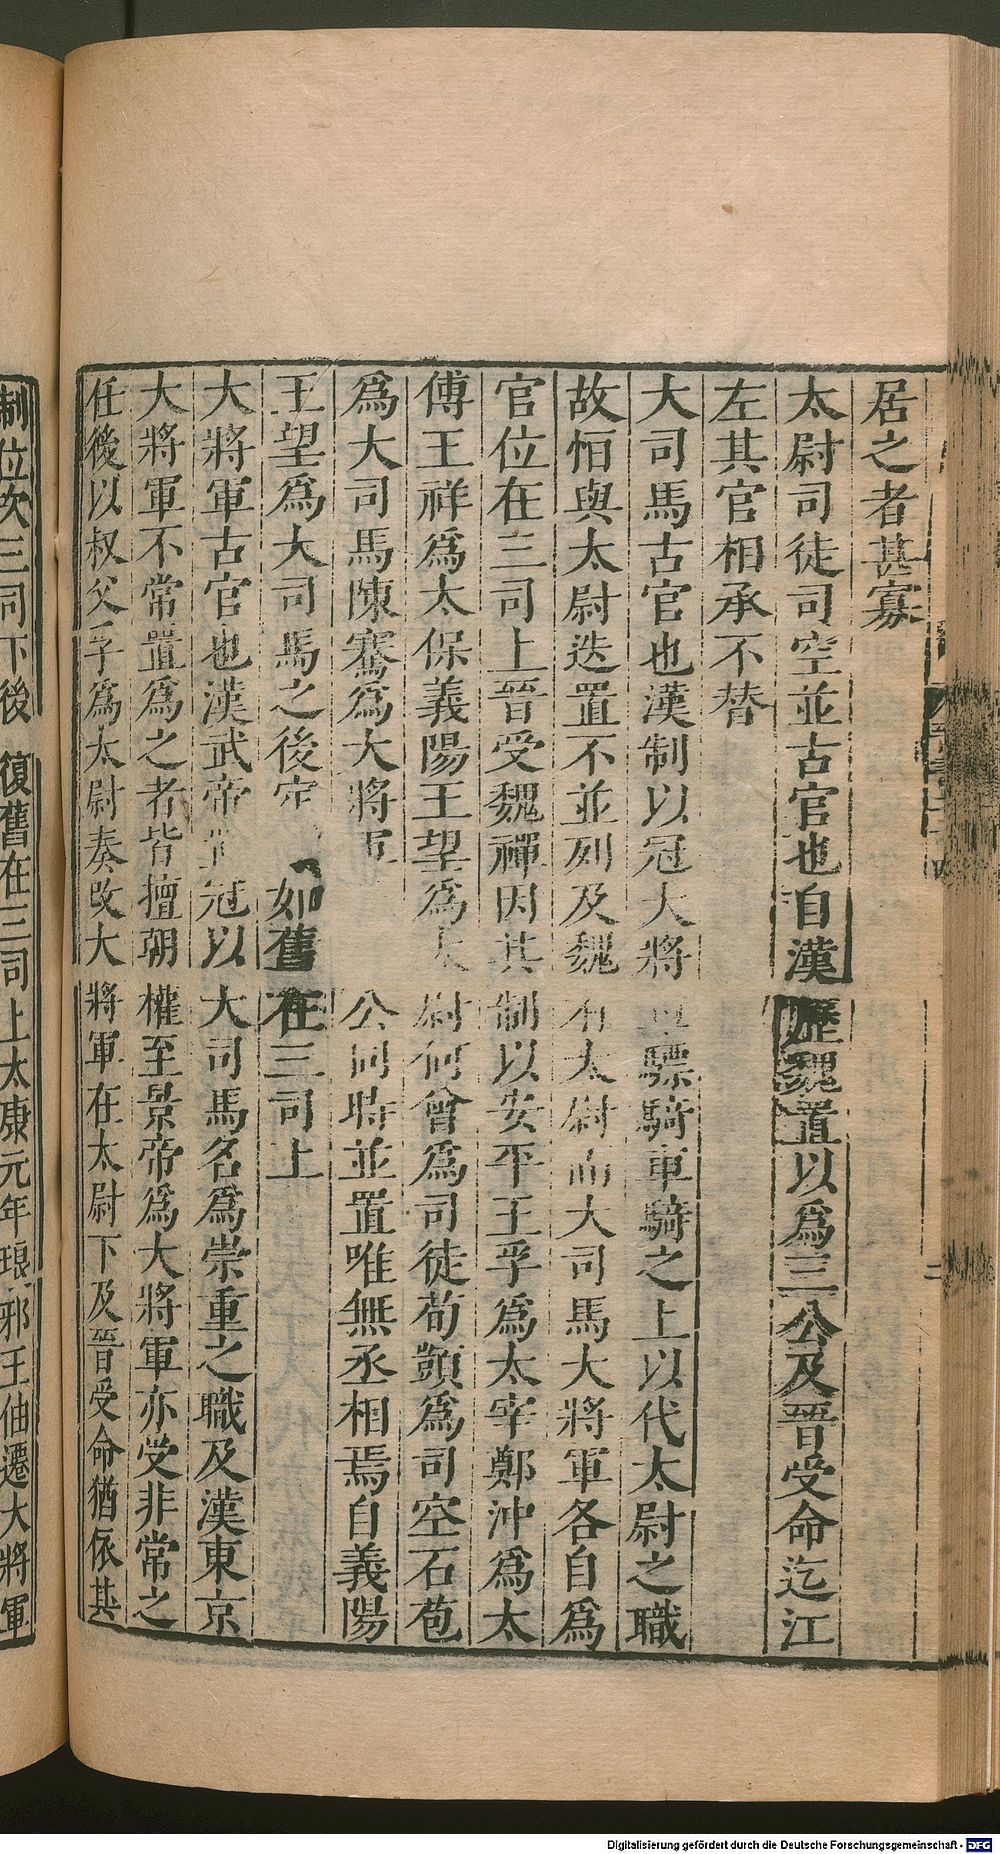 居之者甚寡
太尉司徒司空並古官也自漢歷魏置以為三公及晉受命迄江
左其官相承不替
大司馬古官也漢制以冠大將軍驃騎車騎之上以代太尉之職
故恒與太尉迭置不並列及魏有太尉而大司馬大將軍各自為
官位在三司上晉受魏禪因其制以安平王孚為太宰鄭沖為太
傅王祥為太保義陽王望為太尉何曾為司徒荀顗為司空石苞
為大司馬陳騫為大將軍公同時並置唯無丞相焉自義陽
王望為大司馬之後定如舊在三司上
大將軍古官也漢武帝置冠以大司馬名為崇重之職及漢東京
大將軍不常置為之者皆擅朝權至景帝為大將軍亦受非常之
任後以叔父孚為太尉奏改大將軍在太尉下及晉受命猶依其
制位次三司下後復舊在三司上太康元年琅邪王伷遷大將軍
Digitalisierung gefördert durch die Deutsche Forschungsgemeinschaft - DFG